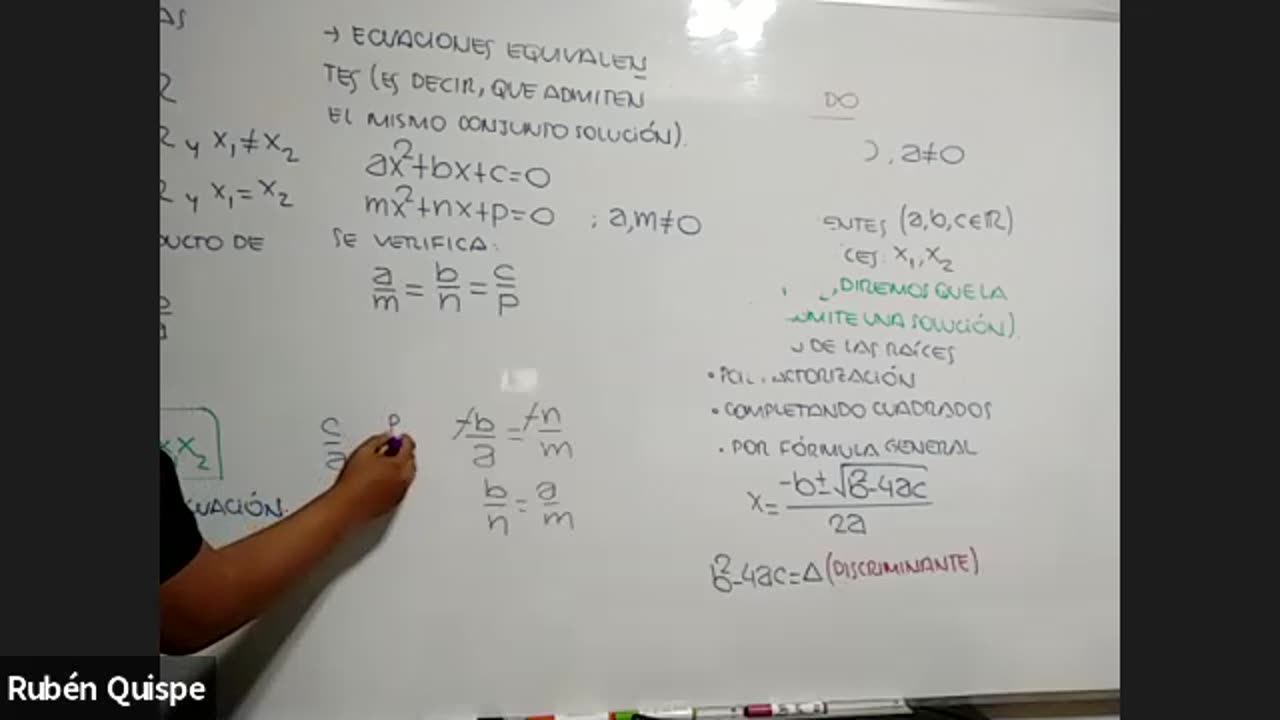 AS
R
R y x₁≠x₂
R y x₁=x₂
DUCTO DE
x₂
CUACIÓN.
→ ECUACIONES EQUIVALEN
TES (ES DECIR, QUE ADMITEN
EL MISMO CONJUNTO SOLUCIÓN).
ax²+bx+c=0
mx²+nx+p=0 ; a,m≠0
SE VERIFICA:
a/m = b/n = c/p
c/a p
-b/a = -n/m
b/n = a/m
DO
), a≠0
ENTES (a,b,c∈R)
CES: x₁,x₂
, DIREMOS QUE LA
MITE UNA SOLUCIÓN)
DE LAS RAÍCES
• POR CTORIZACIÓN
• COMPLETANDO CUADRADOS
• POR FÓRMULA GENERAL
x= -b±√b²-4ac / 2a
b²-4ac=Δ (DISCRIMINANTE)
Rubén Quispe